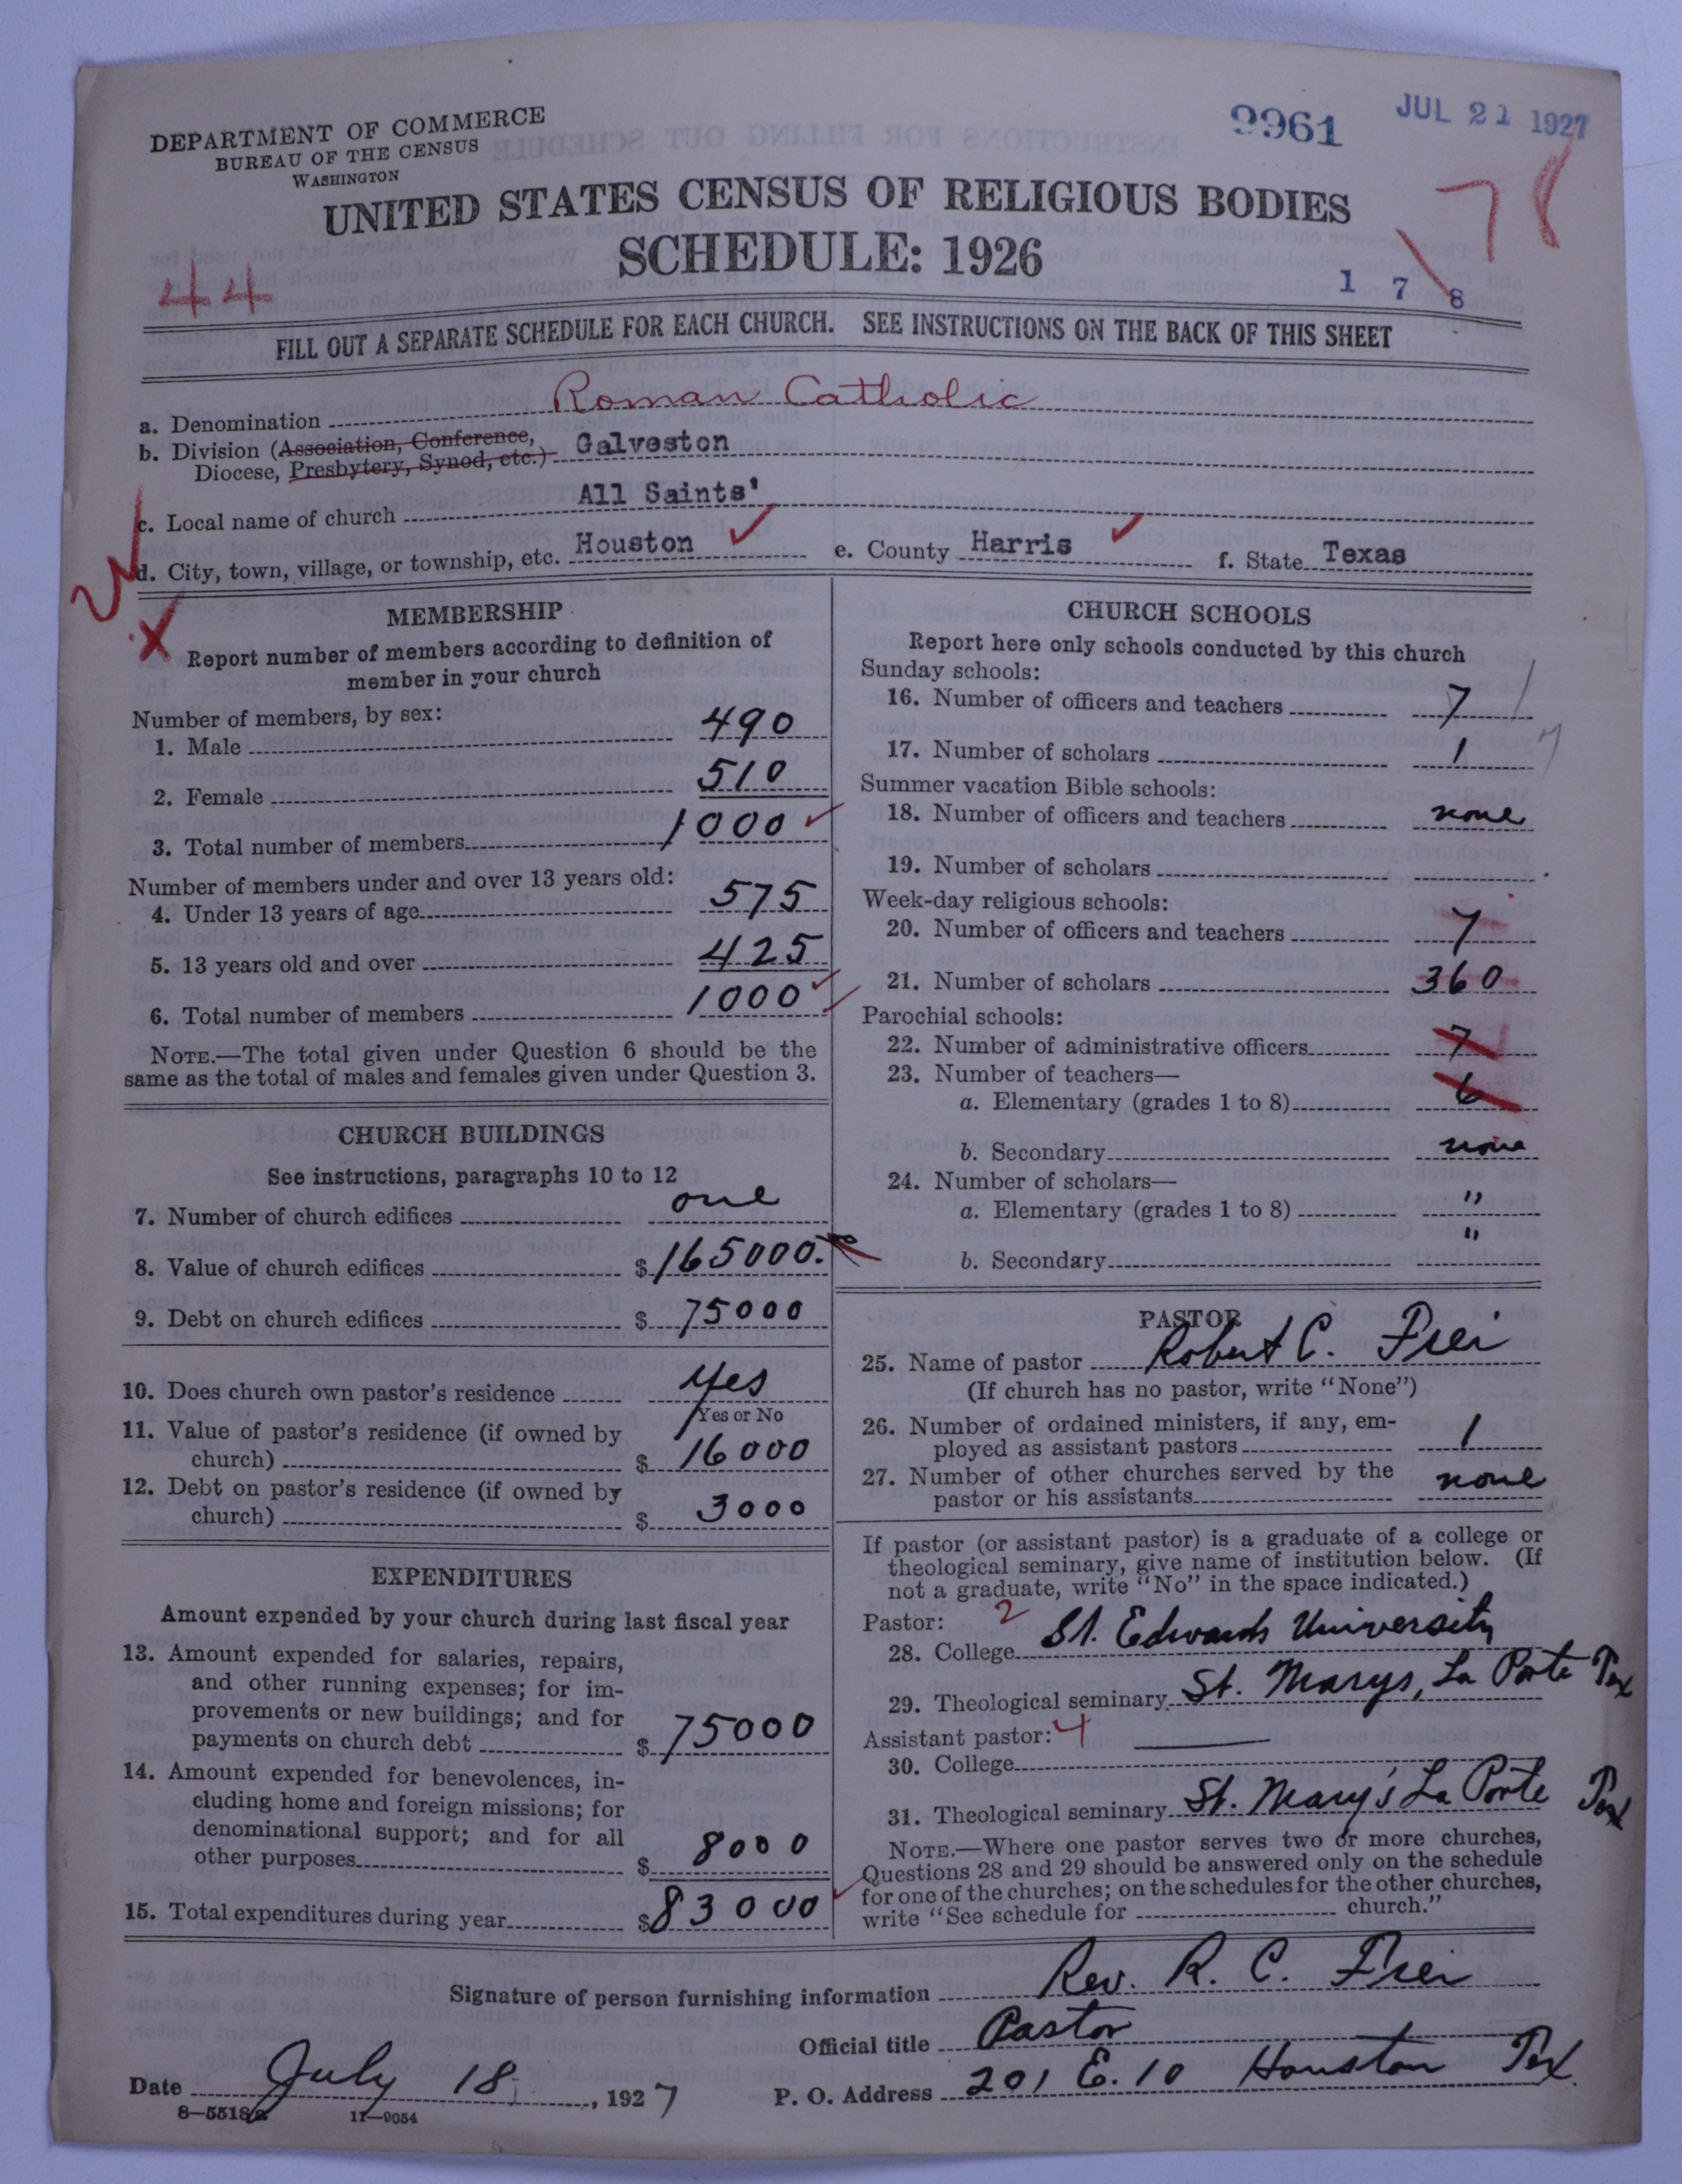 DEPARTMENT OF COMMERCE
BUREAU OF THE CENSUS
WASHINGTON
9961
JUL 21 1927
78
UNITED STATES CENSUS OF RELIGIOUS BODIES
SCHEDULE: 1926
44
1 7 8
FILL OUT A SEPARATE SCHEDULE FOR EACH CHURCH. SEE INSTRUCTIONS ON THE BACK OF THIS SHEET
a. Denomination Roman Catholic
b. Division (Association, Conference,
Diocese, Presbytery, Synod, etc.) Galveston
c. Local name of church All Saints'
d. City, town, village, or township, etc. Houston e. County Harris f. State Texas
MEMBERSHIP
Report number of members according to definition of
member in your church
Number of members, by sex:
1. Male 490
2. Female 510
3. Total number of members 1000
Number of members under and over 13 years old:
4. Under 13 years of age 575
5. 13 years old and over 425
6. Total number of members 1000
NOTE.—The total given under Question 6 should be the
same as the total of males and females given under Question 3.
CHURCH BUILDINGS
See instructions, paragraphs 10 to 12
7. Number of church edifices one
8. Value of church edifices $165000.
9. Debt on church edifices $75000
10. Does church own pastor's residence Yes
Yes or No
11. Value of pastor's residence (if owned by
church) $16000
12. Debt on pastor's residence (if owned by
church) $3000
EXPENDITURES
Amount expended by your church during last fiscal year
13. Amount expended for salaries, repairs,
and other running expenses; for im-
provements or new buildings; and for
payments on church debt $75000
14. Amount expended for benevolences, in-
cluding home and foreign missions; for
denominational support; and for all
other purposes $8000
15. Total expenditures during year $83000
CHURCH SCHOOLS
Report here only schools conducted by this church
Sunday schools:
16. Number of officers and teachers 7
17. Number of scholars 1
Summer vacation Bible schools:
18. Number of officers and teachers none
19. Number of scholars
Week-day religious schools:
20. Number of officers and teachers 7
21. Number of scholars 360
Parochial schools:
22. Number of administrative officers 7
23. Number of teachers—
a. Elementary (grades 1 to 8) 6
b. Secondary none
24. Number of scholars—
a. Elementary (grades 1 to 8) "
b. Secondary "
PASTOR
25. Name of pastor Robert C. Frei
(If church has no pastor, write "None")
26. Number of ordained ministers, if any, em-
ployed as assistant pastors 1
27. Number of other churches served by the
pastor or his assistants none
If pastor (or assistant pastor) is a graduate of a college or
theological seminary, give name of institution below. (If
not a graduate, write "No" in the space indicated.)
Pastor: 2
28. College St. Edwards University
29. Theological seminary St. Marys, La Porte Tex
Assistant pastor: 4
30. College
31. Theological seminary St. Mary's La Porte Tex
NOTE.—Where one pastor serves two or more churches,
Questions 28 and 29 should be answered only on the schedule
for one of the churches; on the schedules for the other churches,
write "See schedule for church."
Signature of person furnishing information Rev. R. C. Frei
Official title Pastor
Date July 18, 1927 P. O. Address 201 E. 10 Houston Tex.
11—9054